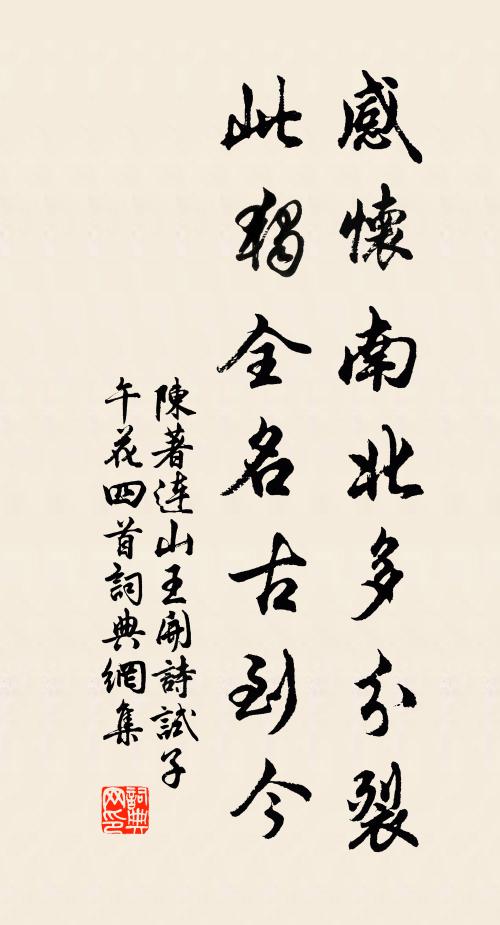 感懷南北多分裂
此獨全名古到今
陳著連山王開詩試子
午花四首詞典網集
詞典網印